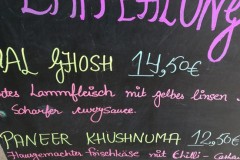 EMPFEHLUNG
AL GHOSH 14,50€
tes Lammfleisch mit gelbes linsen -
Scharfer currysauce.
PANEER KHUSHNUMA 12,50€
Hausgemachter-Frischkäse mit Chilli-